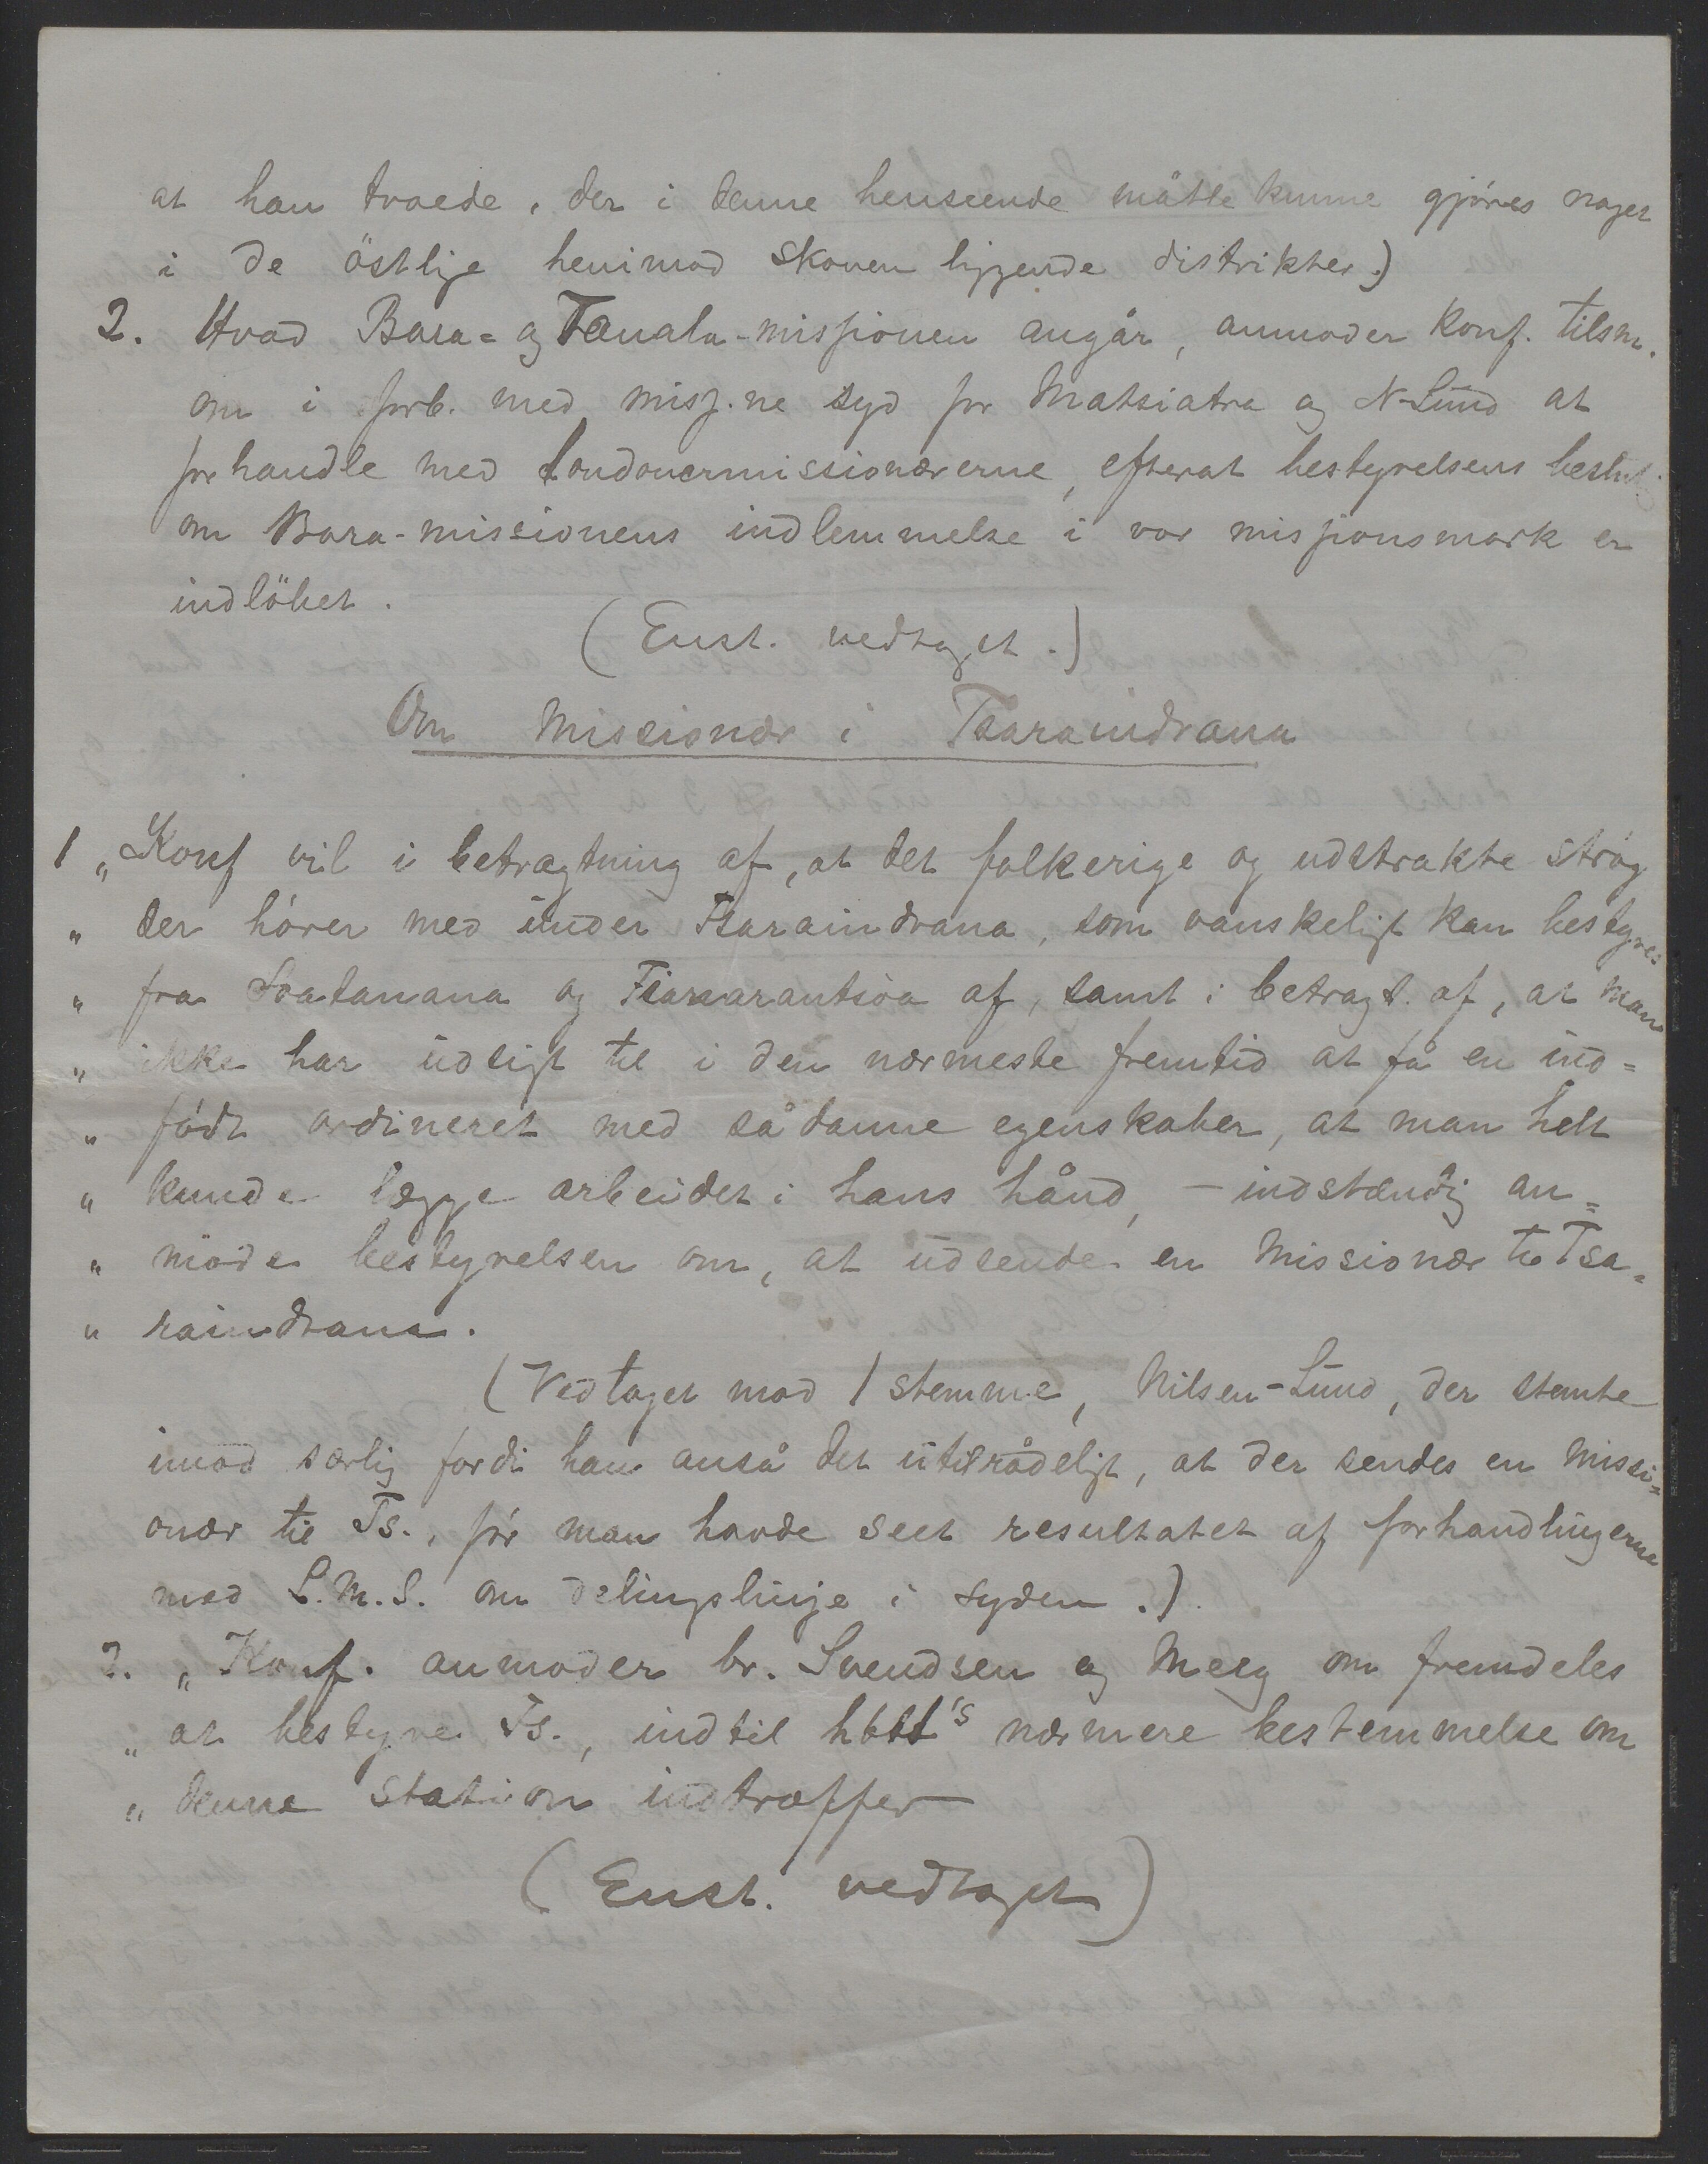 at han troede, der i denne henseende måtte kunne gjøres noget
i de östlige henimod skoven liggende distrikter.)
2. Hvad Bara= og Tanala-missionen angår, anmoder Konf. tilsm.
om i forb. med miss.ne syd for Matsiatra og N-Lund at
forhandle med Londonermissionærerne, efterat bestyrelsens beslutg
om Bara-missionens indlemmelse i vor missionsmark er
indløbet.
(Enst. vedtaget.)
Om Missionær i Tsaraindrana
1 „Konf vil i betragtning af, at det folkerige og udstrakte strøg
„ der hører med under Tsaraindrana, som vanskeligt kan bestyres
„ fra Soatanana og Fianarantsoa af, samt i betragt. af, at man
„ ikke har udsigt til i den nærmeste fremtid at få en ind=
„ født ordineret med sådanne egenskaber, at man helt
„ kunde lægge arbeidet i hans hånd, – indstændig an=
„ mode bestyrelsen om, at udsende en Missionær til Tsa=
„ raindrana.
(Vedtaget mod 1 stemme, Nilsen-Lund, der stemte
imod særlig fordi han anså det utilrådeligt, at der sendes en Missi=
onær til Ts., før man havde seet resultatet af forhandlingerne
med L.M.S. om delingslinje i syden.)
2. „Konf. anmoder br. Svendsen og Meeg om fremdeles
„ at bestyre Ts., indtil hbst's nærmere bestemmelse om
„ denne station indtræffer
(Enst. vedtaget)